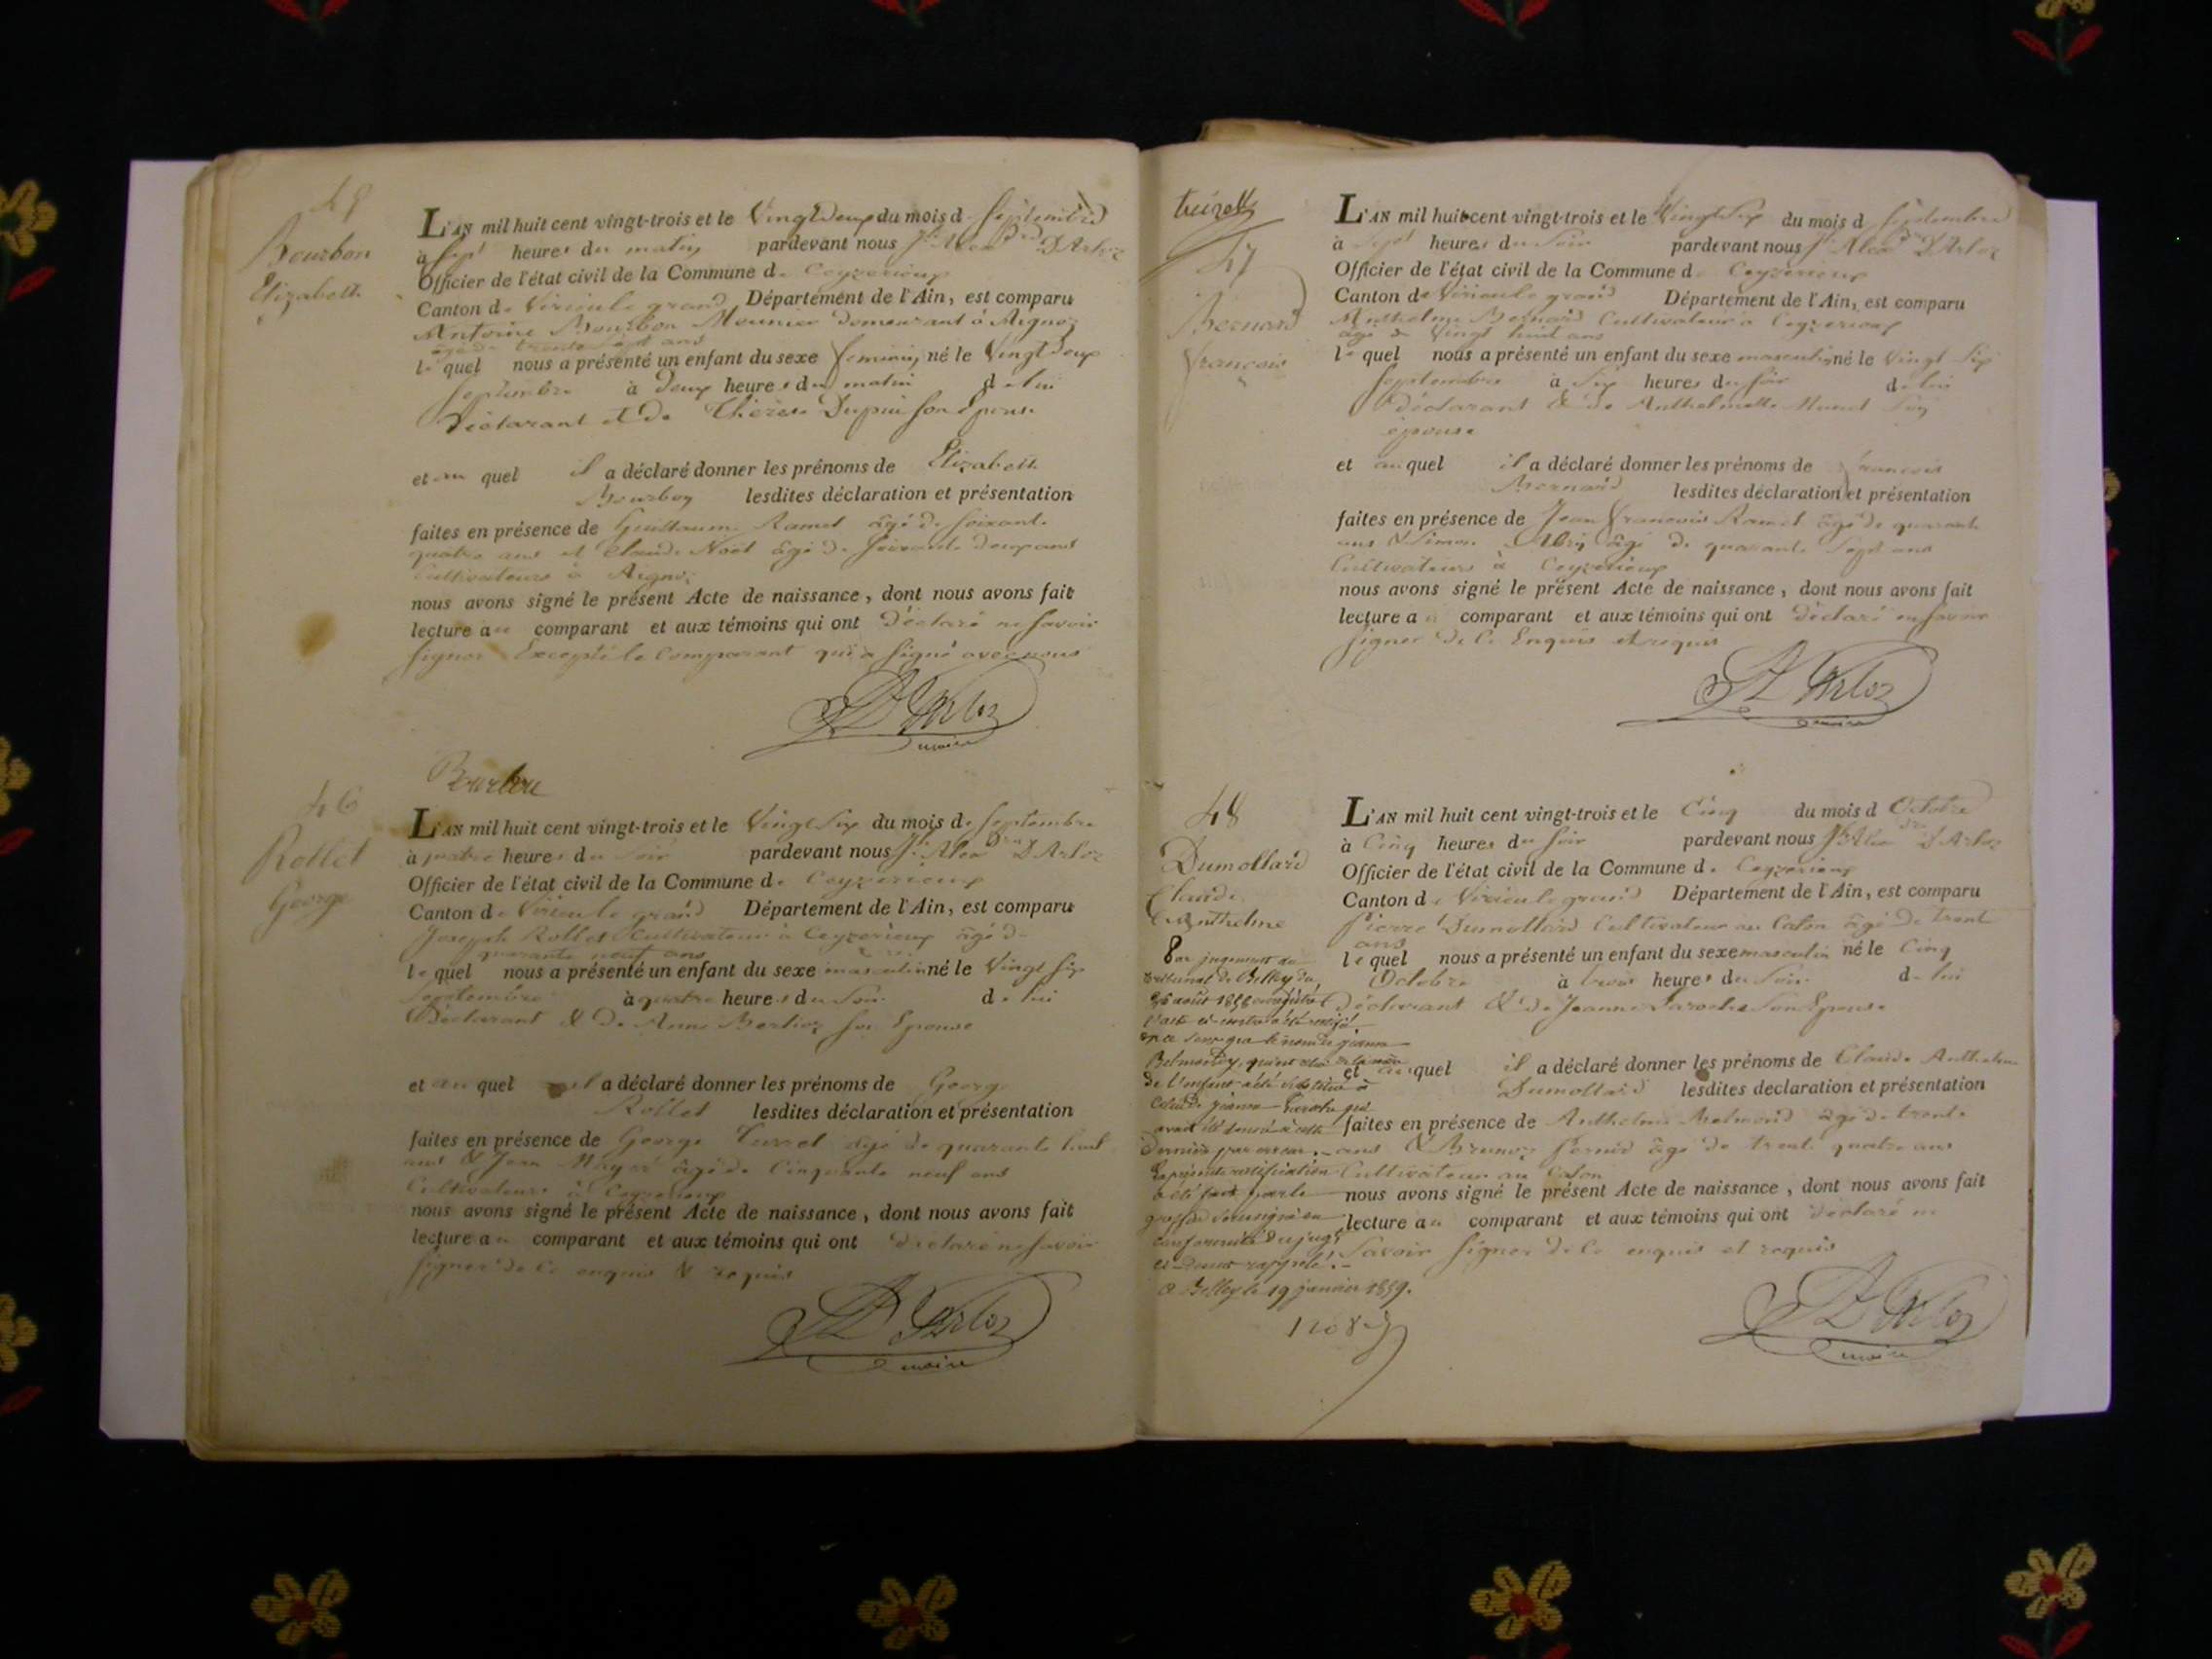 45
Bourbon
Elizabeth
L'AN mil huit cent vingt-trois et le Vingt deux du mois d. Septembre
à Sept heures du matin pardevant nous Jh. Alexdre D'Arloz
Officier de l'état civil de la Commune de Ceyzerieux
Canton de Virieu le grand Département de l'Ain, est comparu
Antoine Bourbon Meunier demeurant à Aignoz
âgé de trente sept ans
lequel nous a présenté un enfant du sexe feminin né le Vingt deux
Septembre à deux heures du matin de lui
Déclarant et de Thérèse Dupui son Epouse
et au quel il a déclaré donner les prénoms de Elizabeth
Bourbon lesdites déclaration et présentation
faites en présence de Guillaume Ramel âgé de soixante
quatre ans et Claude Noël âgé de soixante deux ans
Cultivateurs à Aignoz
nous avons signé le présent Acte de naissance, dont nous avons fait
lecture au comparant et aux témoins qui ont déclaré ne savoir
signer Excepté le Comparant qui a signé avec nous
D'Arloz
maire
46
Rollet
George
L'AN mil huit cent vingt-trois et le Vingt Six du mois de Septembre
à quatre heures du Soir pardevant nous Jh. Alexdre D'Arloz
Officier de l'état civil de la Commune de Ceyzerieux
Canton de Virieu le grand Département de l'Ain, est comparu
Joseph Rollet Cultivateur à Ceyzerieux âgé de
quarante neuf ans
lequel nous a présenté un enfant du sexe masculin né le Vingt Six
Septembre à quatre heures du Soir de lui
Déclarant & de Anne Berlioz son Epouse
et au quel il a déclaré donner les prénoms de George
Rollet lesdites déclaration et présentation
faites en présence de George âgé de quarante huit
ans & Jean âgé de Cinquante neuf ans
Cultivateurs à Ceyzerieux
nous avons signé le présent Acte de naissance, dont nous avons fait
lecture au comparant et aux témoins qui ont déclaré ne savoir
signer de ce enquis & requis
D'Arloz
maire
treize
47
Bernard
françois
L'AN mil huit cent vingt-trois et le Vingt Six du mois d Septembre
à Sept heures du Soir pardevant nous Jh. Alexdre D'Arloz
Officier de l'état civil de la Commune d Ceyzerieux
Canton de Virieu le grand Département de l'Ain, est comparu
Anthelme Bernard Cultivateur à Ceyzerieux
âgé de Vingt huit ans
lequel nous a présenté un enfant du sexe masculin né le Vingt Six
Septembre à Six heures du Soir de lui
déclarant & de Anthelmette Son
épouse
et au quel il a déclaré donner les prénoms de françois
Bernard lesdites déclaration et présentation
faites en présence de Jean françois Ramel âgé de quarante
ans & Simon âgé de quarante Sept ans
Cultivateurs à Ceyzerieux
nous avons signé le présent Acte de naissance, dont nous avons fait
lecture a comparant et aux témoins qui ont déclaré ne savoir
signer de Ce Enquis et requis
D'Arloz
maire
48
Dumollard
Claude
Anthelme
Par jugement du
tribunal de Belley du
26 août 1858 enregistré
l'acte ci-contre a été rectifié
en ce sens que le nom de jeanne
qui est celui de la mère
de l'enfant a été substitué à
celui de jeanne Laroche qui
avait été donné à cette
dernière par erreur.
La présente rectification
a été faite par le
greffier soussigné en
conformité du jugt
ci-dessus rappelé.
à Belley le 19 janvier 1859.
L'AN mil huit cent vingt-trois et le Cinq du mois d Octobre
à Cinq heures du Soir pardevant nous Jh. Alexdre D'Arloz
Officier de l'état civil de la Commune de Ceyzerieux
Canton de Virieu le grand Département de l'Ain, est comparu
Pierre Dumollard Cultivateur au Caton âgé de trente
ans
lequel nous a présenté un enfant du sexe masculin né le Cinq
Octobre à trois heures du Soir de lui
déclarant & de Jeanne Laroche Son Epouse
et au quel il a déclaré donner les prénoms de Claude Anthelme
Dumollard lesdites declaration et présentation
faites en présence de Anthelme âgé de trente
ans & âgé de trente quatre ans
Cultivateur au Caton
nous avons signé le présent Acte de naissance, dont nous avons fait
lecture au comparant et aux témoins qui ont déclaré ne
Savoir signer de Ce enquis et requis
D'Arloz
maire